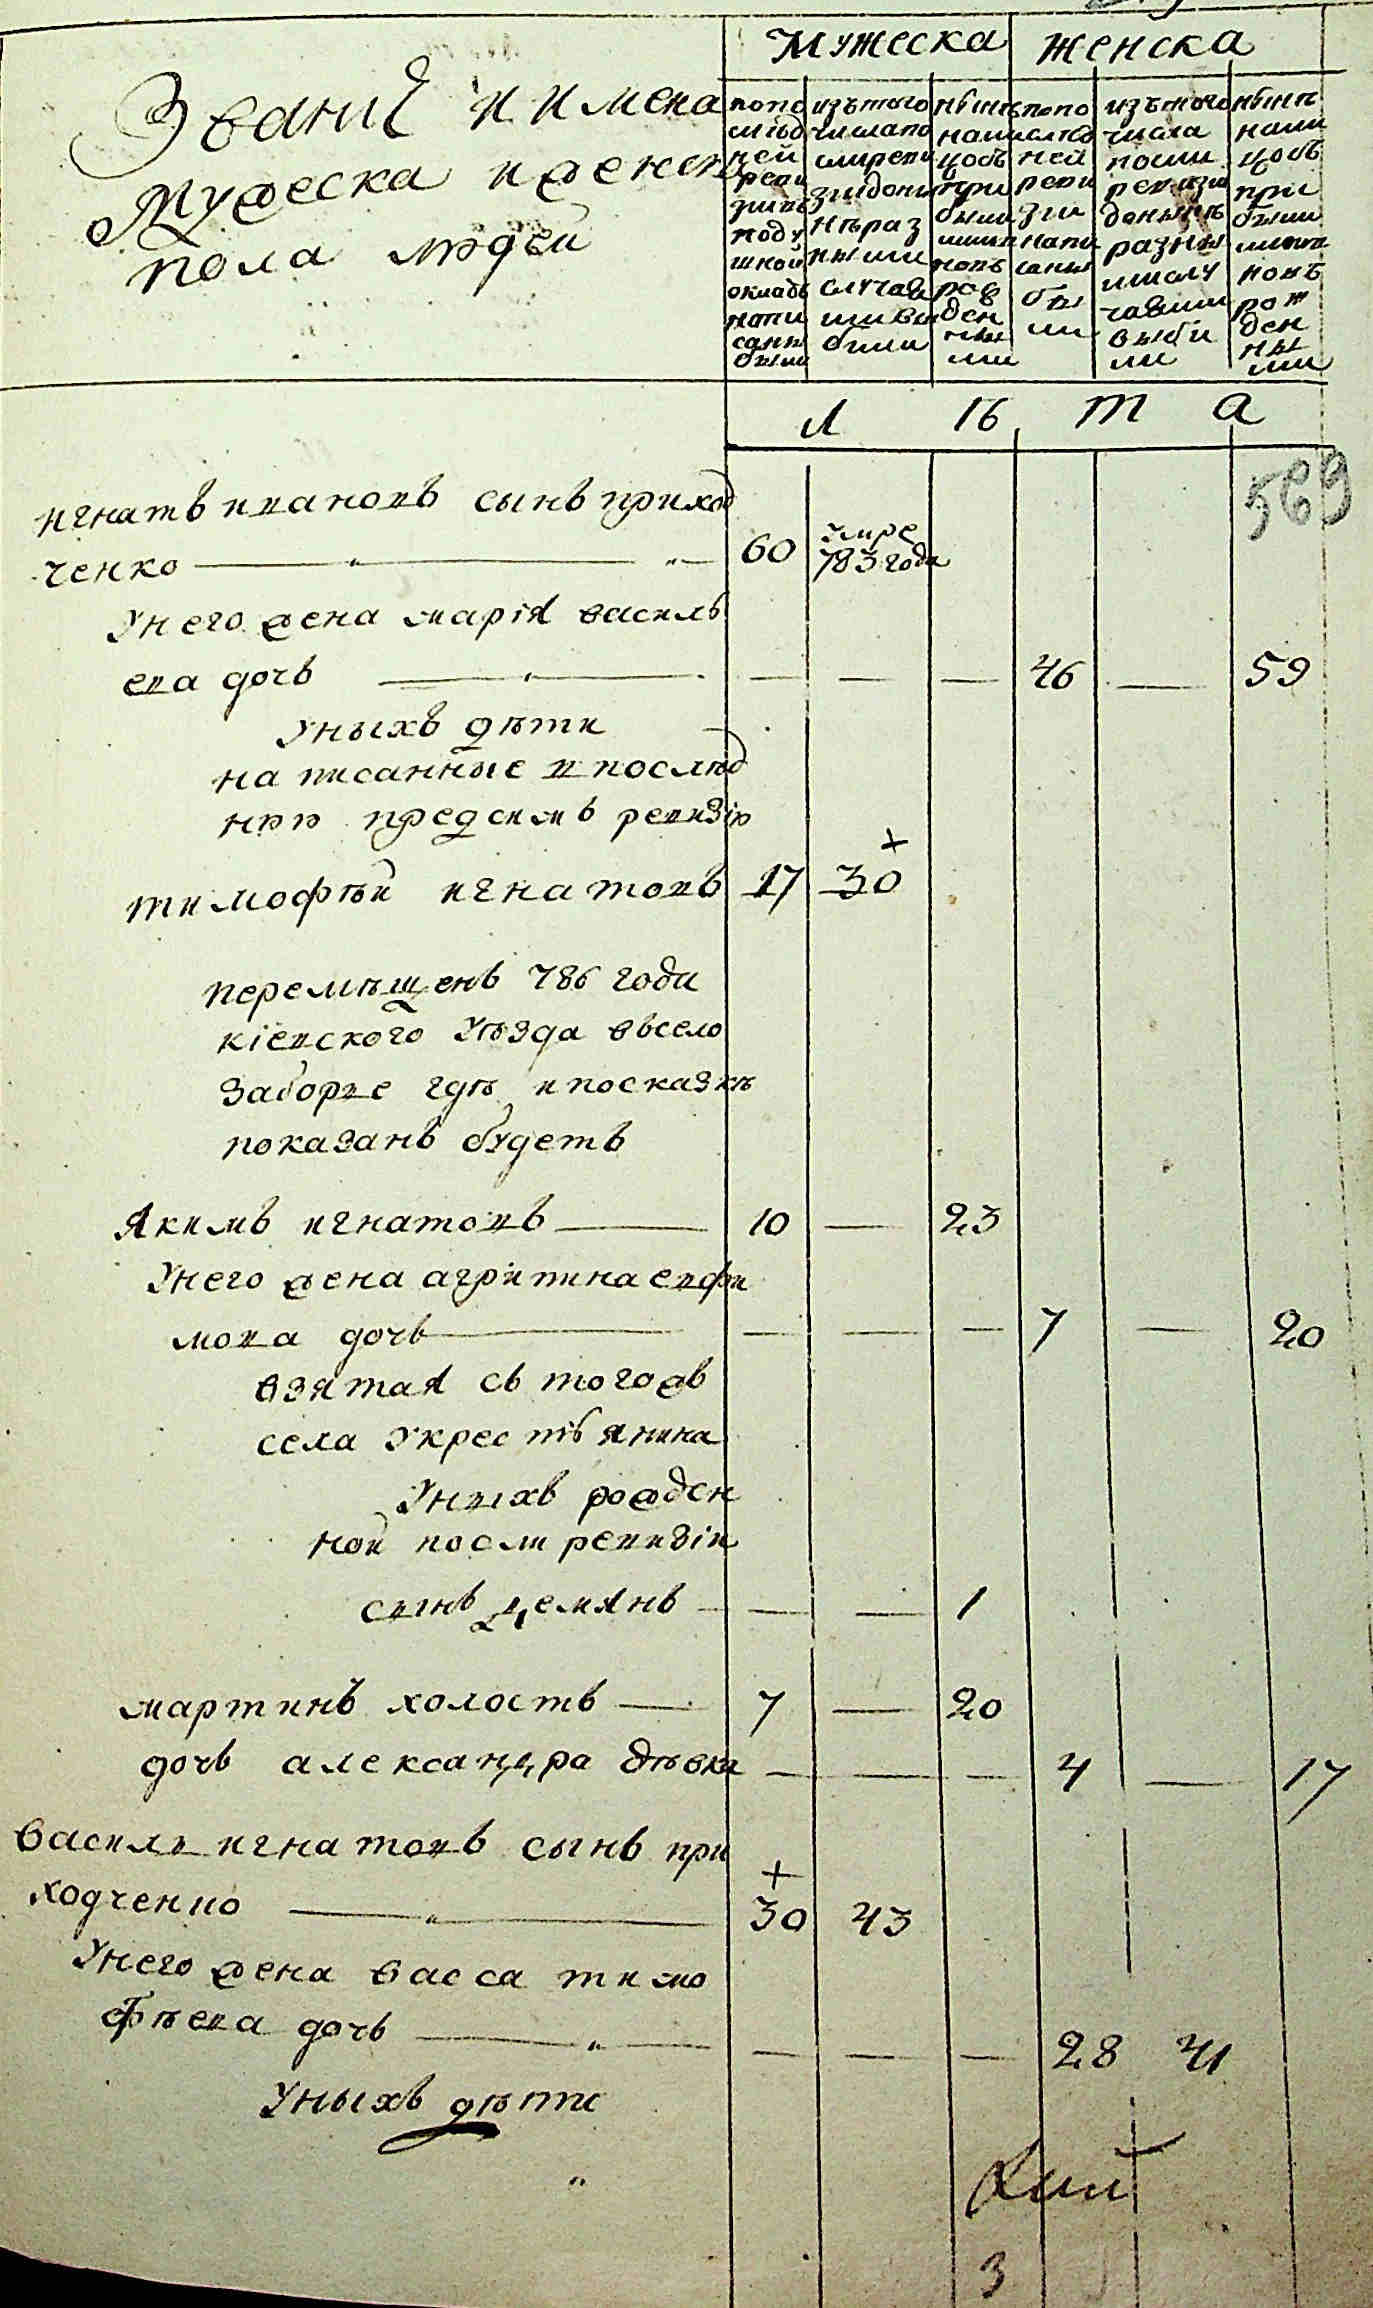 Мужеска женска
Званіе и имена
Мужеска и женска
пола людей
попо
слѣд
ней
реви
зіивъ
поду
шной
окладъ
напи
саны
были
изътого
числапо
слиреви
зіидонн
нѣраз
ными
случая
мивы
были
нынѣ
нали
цобъ
при
были
ми
новъ
рож
ден
ны
ми
попо
слѣд
ней
реви
зіи
напи
саны
бы
ли
изътого
числа
посли
ревизи
донынѣ
разны
мислу
чаями
выбі
ли
нынѣ
нали
цобъ
при
были
ми
новъ
рож
ден
ны
ми
л ѣ т а
569
игнатъ ивановъ сынъ приход
ченко 60 умре
783 года
Унего жена марія василь
ева дочь — — — 46 — 59
Уныхъ дѣти
на писанные в послѣд
нюю предсимъ ревизію
тимофѣй игнатовъ 17 30
перемѣщенъ 786 года
кіевского Уѣзда въсело
заборье гдѣ и посказкѣ
показанъ будетъ
Якимъ игнатовъ — 10 — 23
Унего жена агрипина евфи
мова дочь — — — 7 — 20
взятая съ тогожъ
села Укрестьянина
Уныхъ рожден
ной посли ревизіи
сынъ демянъ — — 1
мартинъ холостъ — 7 — 20
дочь александра дѣвка — — — 4 — 17
василь игнатовъ сынъ при
ходченко — 30 43
Унего жена васса тимо
фѣева дочь — — — 28 41
Уныхъ дѣти
3